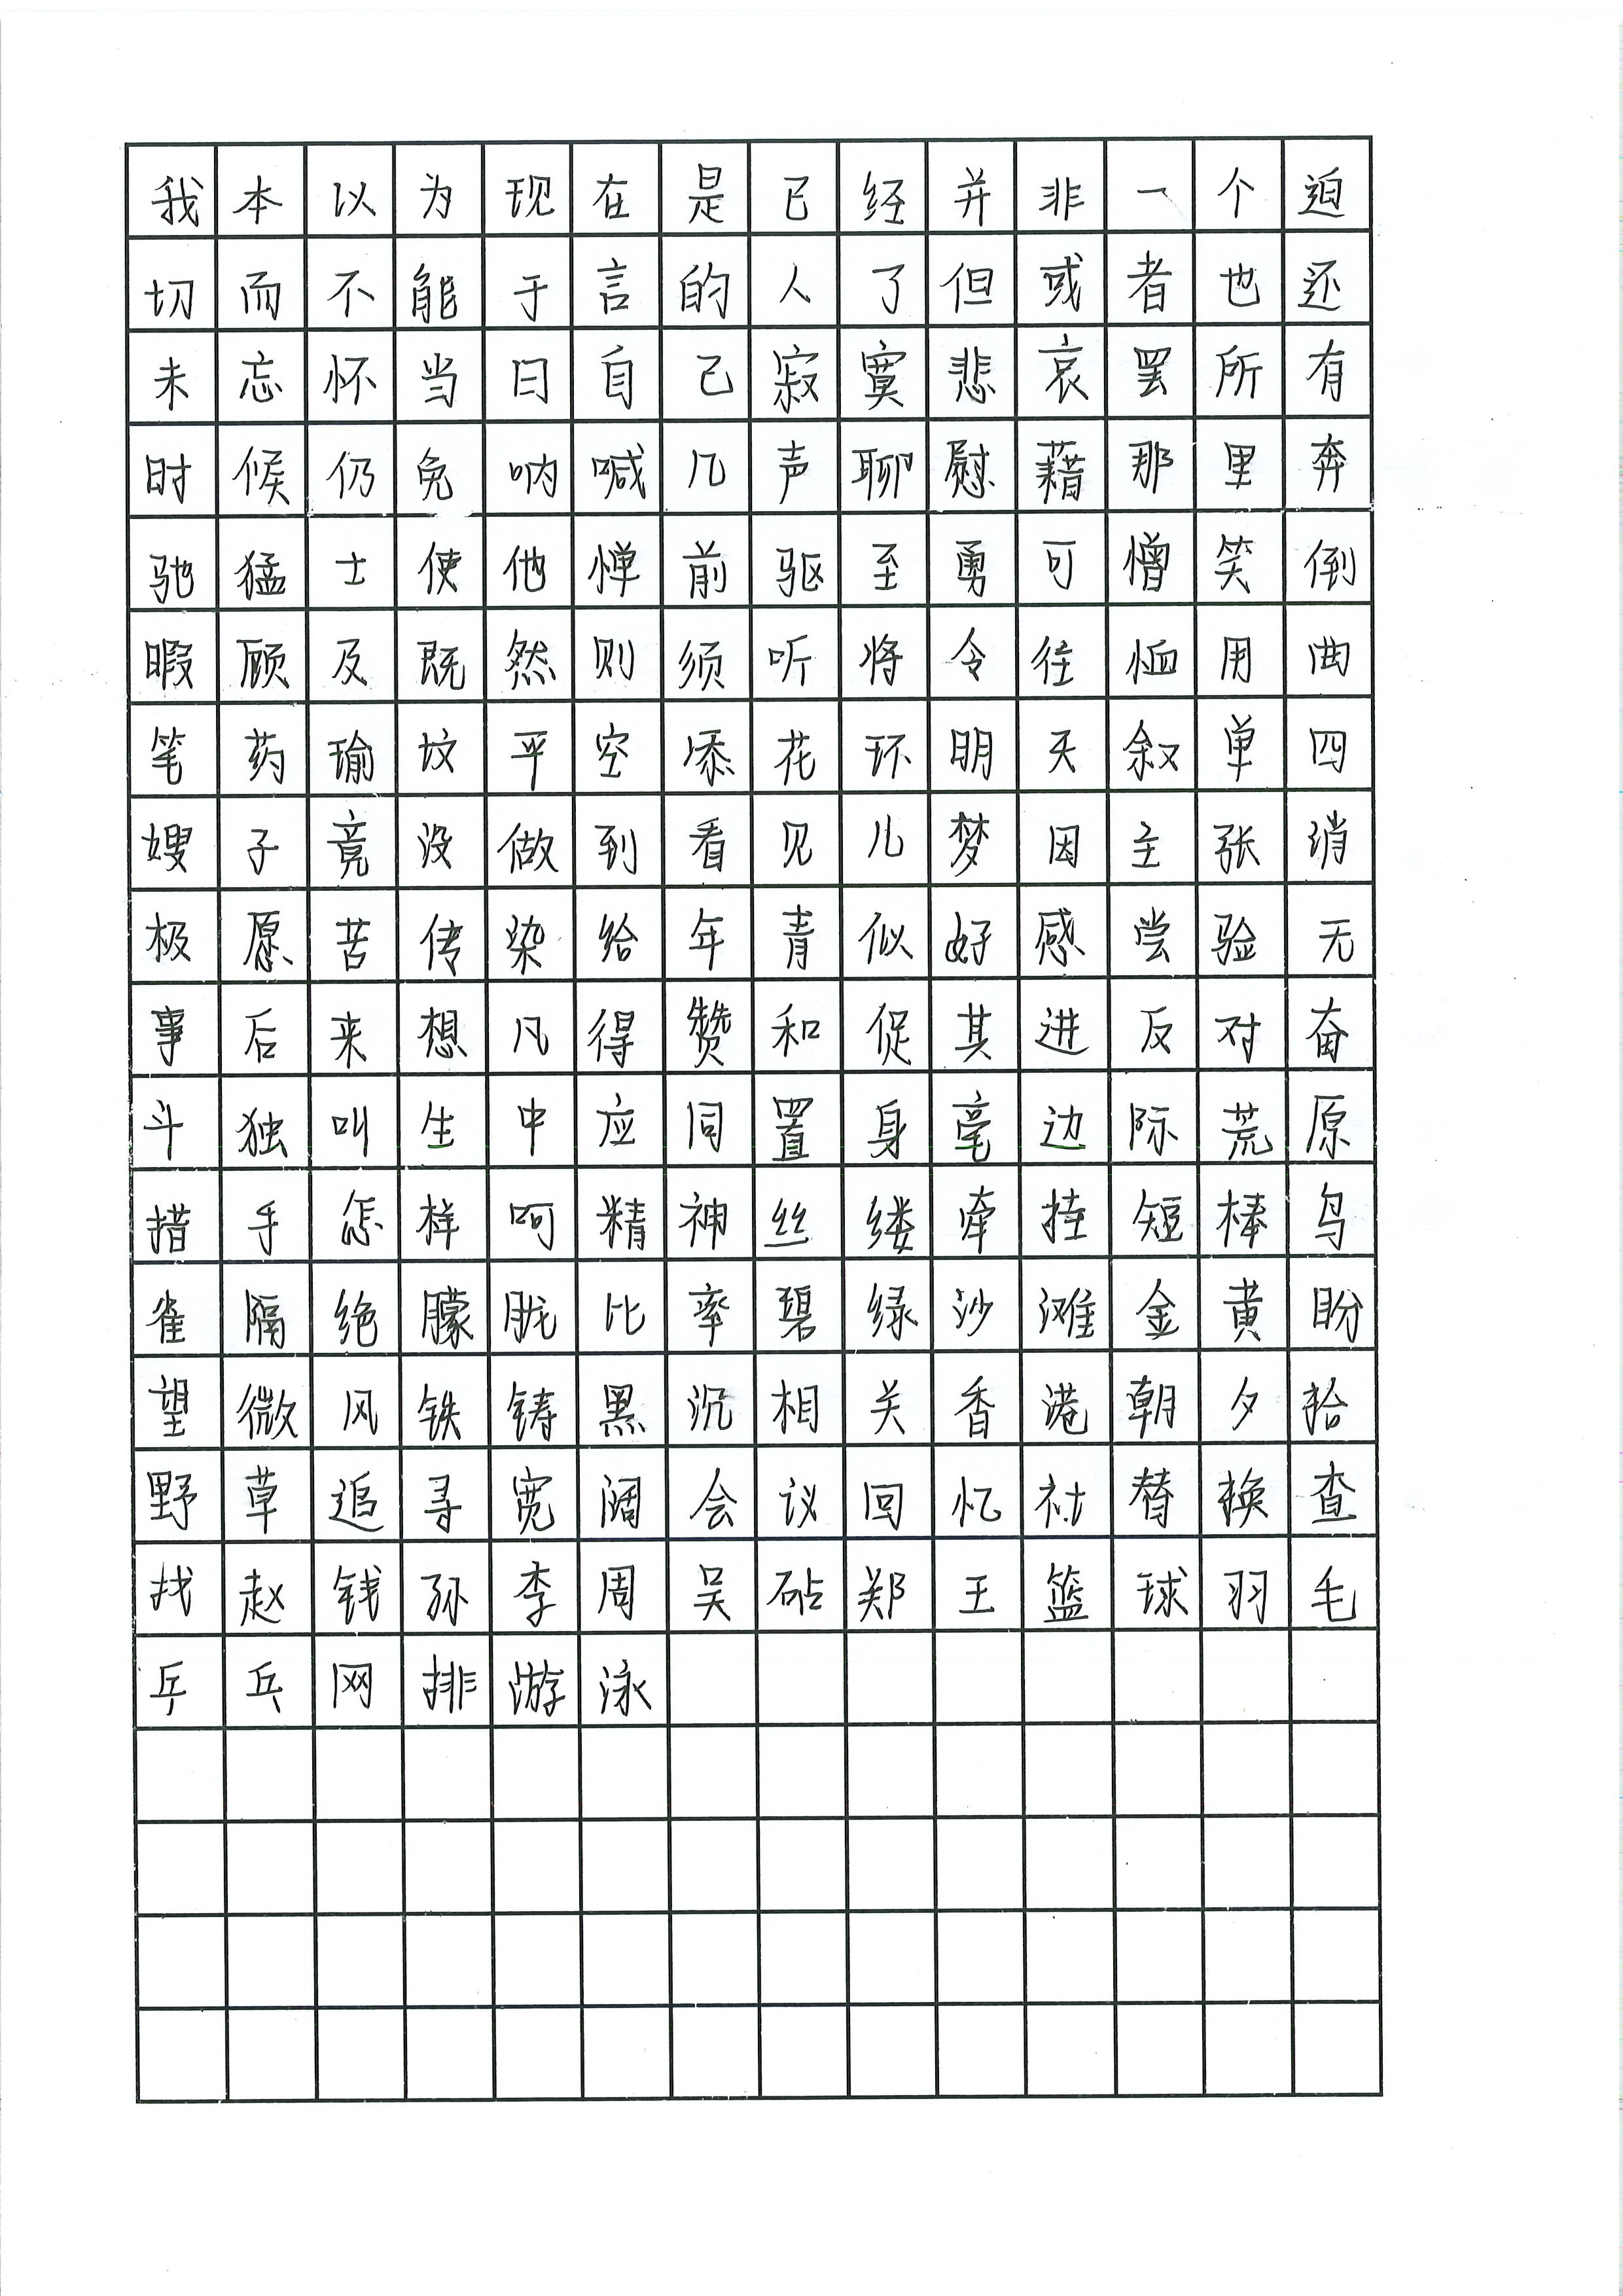 我本以为现在是已经并非一个迫
切而不能于言的人了但或者也还
未忘怀当日自己寂寞悲哀罢所有
时候仍免呐喊几声聊慰藉那里奔
驰猛士使他惮前驱至勇可憎笑倒
暇顾及既然则须听将令往恤用曲
笔药瑜坟平空添花环明天叙单四
嫂子竟没做到看见儿梦因主张消
极愿苦传染给年青似好感尝验无
事后来想凡得赞和促其进反对奋
斗独叫生中应同置身毫边际荒原
措手怎样呵精神丝缕牵挂短棒鸟
雀隔绝朦胧比率碧绿沙滩金黄盼
望微风铁铸黑沉相关香港朝夕拾
野草追寻宽阔会议回忆社替换查
找赵钱孙李周吴砧郑王篮球羽毛
乒乓网排游泳